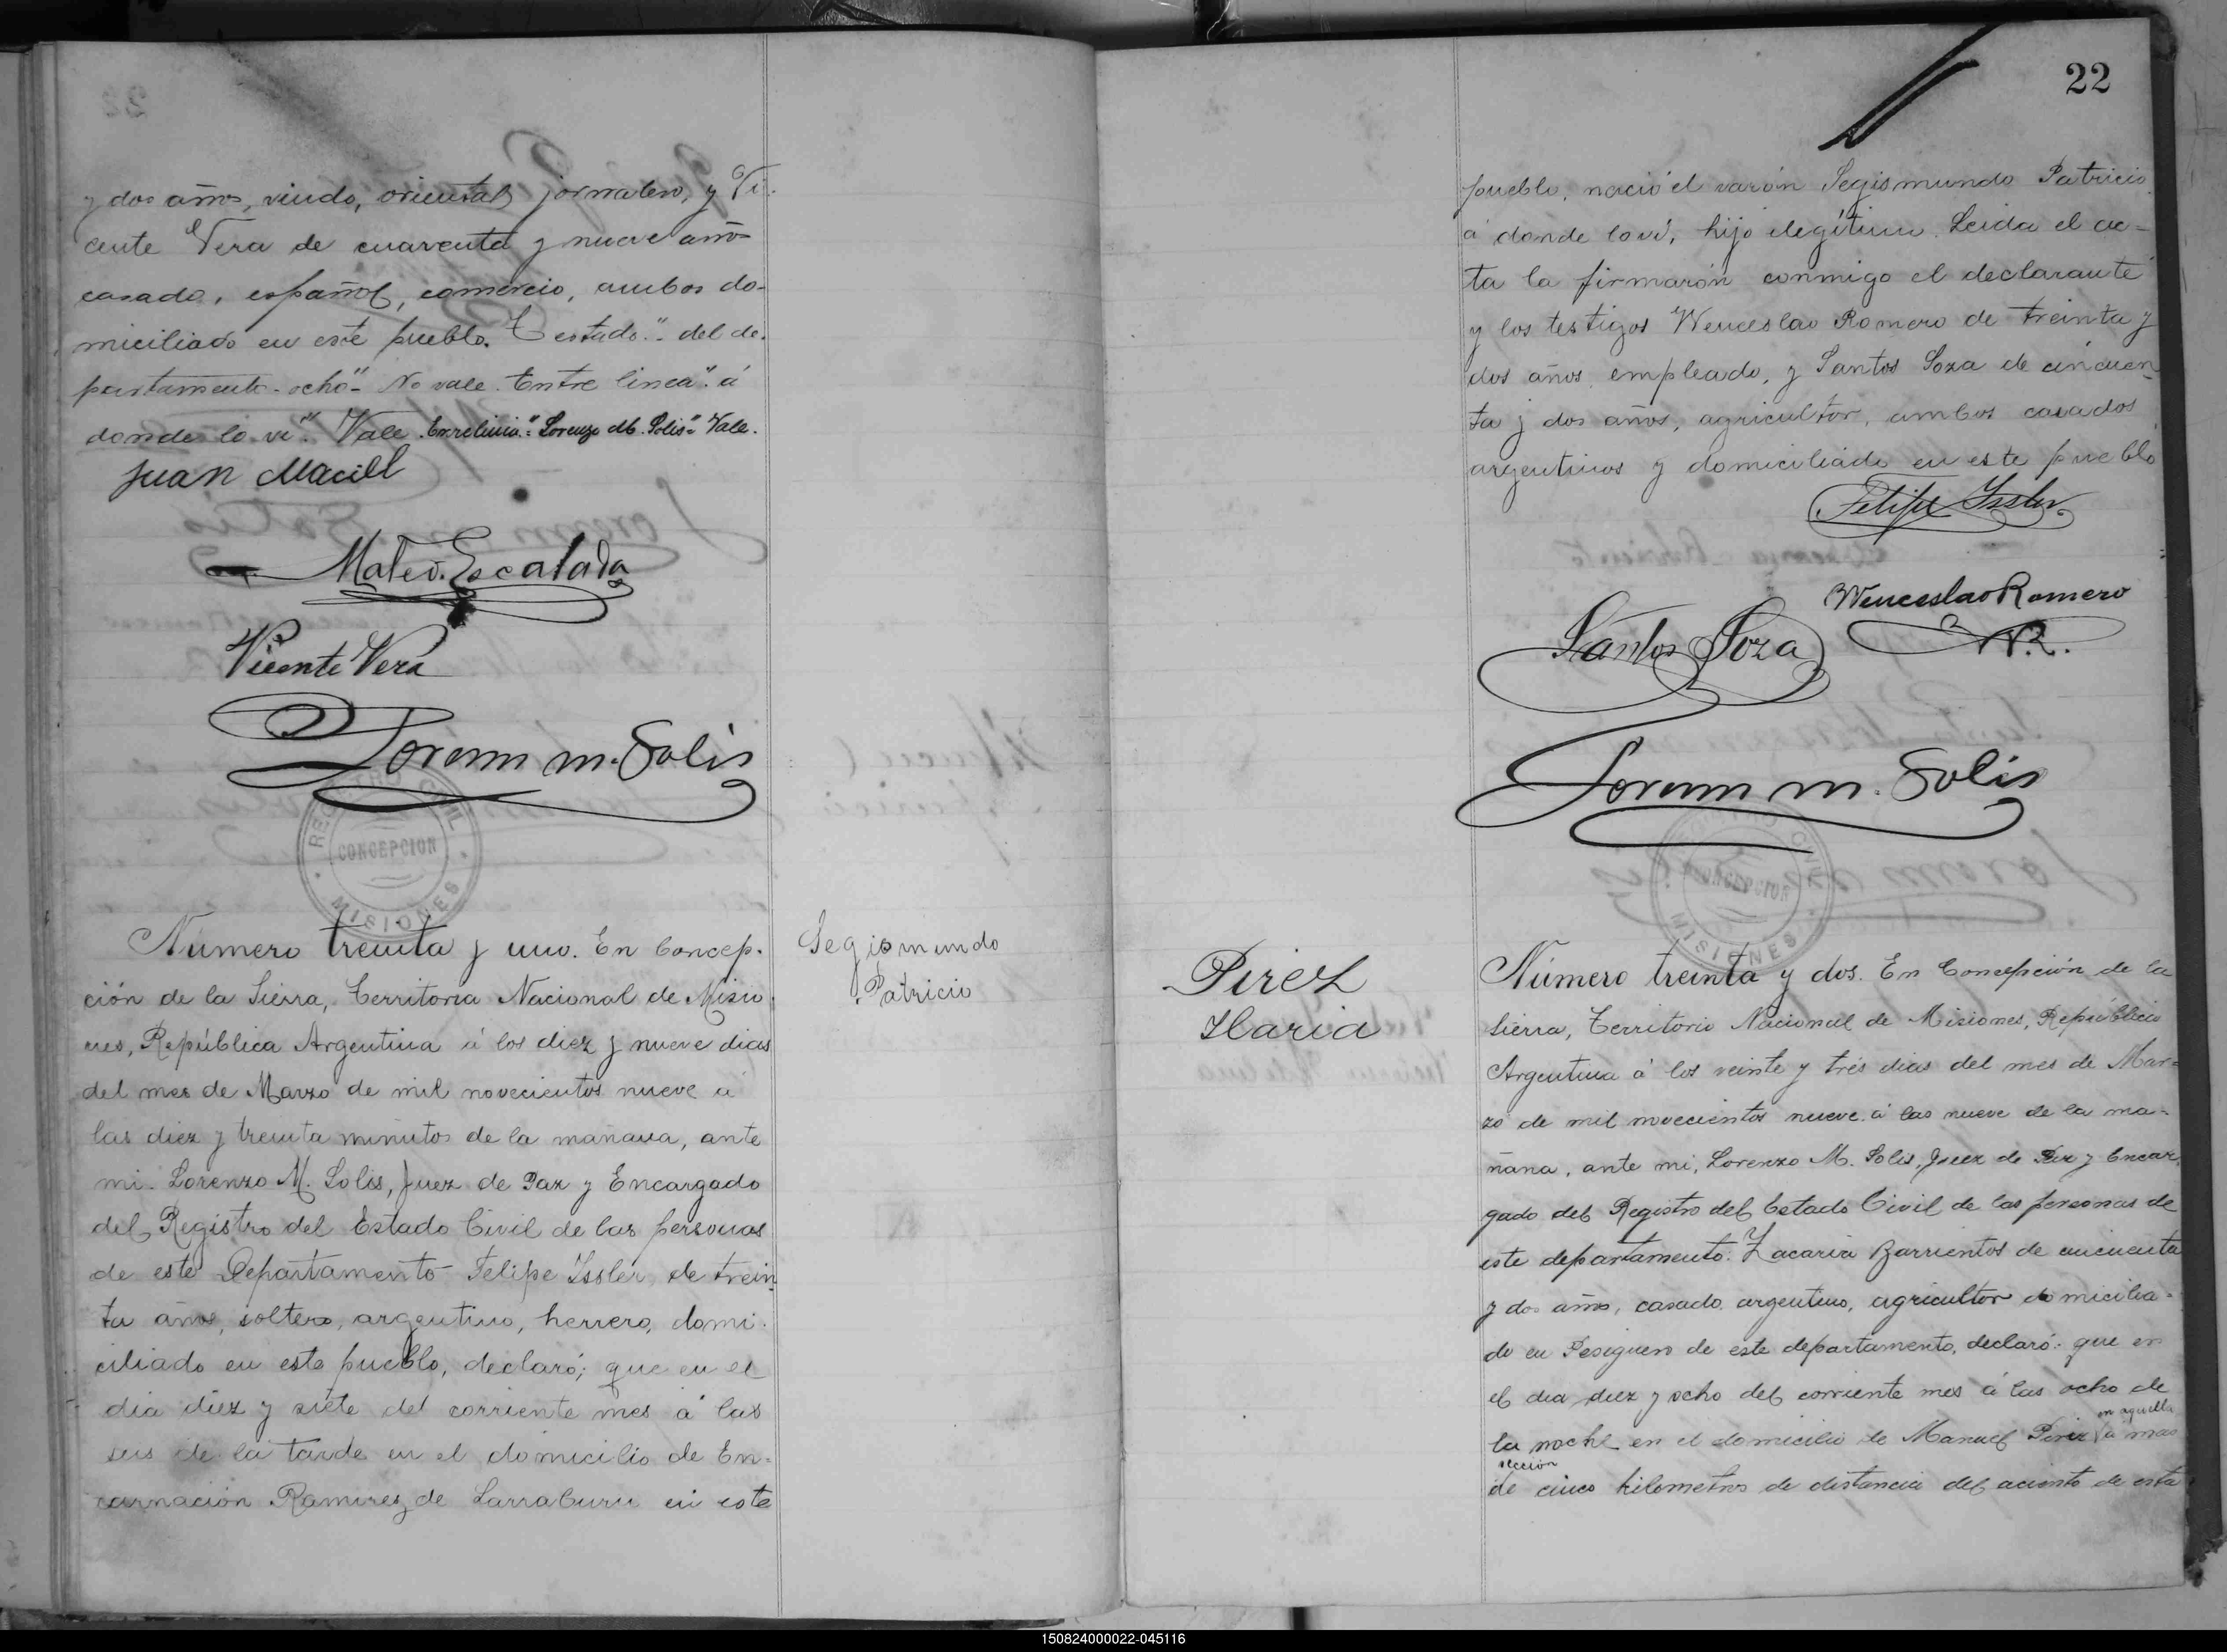 y dos años, viudo, oriental, jornalero, y Vi-
cente Vera de cuarenta y nueve años
casado, español, comercio, ambos do-
miciliado en este pueblo. Testado "del de-
partamento - ocho" - No vale. Entre linea "á
donde lo vi". Vale. Enrelinia "Lorenzo M. Solis" Vale.
Juan Maciel
Mateo Escalada
Vicente Vera
Lorenzo M. Solis
REGISTRO CIVIL
CONCEPCION
MISIONES
Número treinta y uno. En Concep-
ción de la Sierra, Territorio Nacional de Misio-
nes, República Argentina á los diez y nueve dias
del mes de Marzo de mil novecientos nueve á
las diez y treinta minutos de la mañana, ante
mi Lorenzo M. Solis, Juez de Paz y Encargado
del Registro del Estado Civil de las personas
de este Departamento Felipe Issler, de trein-
ta años, soltero, argentino, herrero, domi-
ciliado en este pueblo, declaró; que en el
dia diez y siete del corriente mes á las
seis de la tarde en el domicilio de En-
carnación Ramirez de Larraburu en este
Segismundo
Patricio
22
pueblo, nació el varón Segismundo Patricio
á donde lo vi, hijo ilegítimo. Leida el ac-
ta la firmarón conmigo el declarante
y los testigos Wenceslao Romero de treinta y
dos años, empleado, y Santos Soza de cincuen-
ta y dos años, agricultor, ambos casados
argentinos y domiciliado en este pueblo
Felipe Issler
Wenceslao Romero
W.R.
Santos Soza
Lorenzo M. Solis
REGISTRO CIVIL
CONCEPCION
MISIONES
Pirez
Ilaria
Número treinta y dos. En Concepción de la
Sierra, Territorio Nacional de Misiones, República
Argentina á los veinte y trés dias del mes de Mar-
zo de mil novecientos nueve á las nueve de la ma-
ñana, ante mi, Lorenzo M. Solis, Juez de Paz y Encar-
gado del Registro del Estado Civil de las personas de
este departamento: Zacaria Barrientos de cincuenta
y dos años, casado, argentino, agricultor domicilia-
do en Pesiguero de este departamento, declaró: que en
el dia diez y ocho del corriente mes á las ocho de
la noche en el domicilio de Manuel Pirez en aquella á mas
sección
de cinco kilometros de distancia del aciento de esta
150824000022-045116